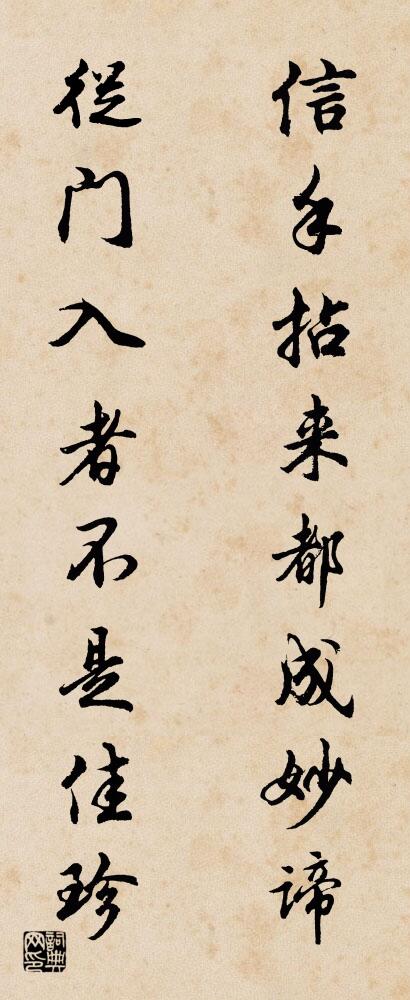 信手拈来都成妙谛
從门入者不是佳珍
詞典网印